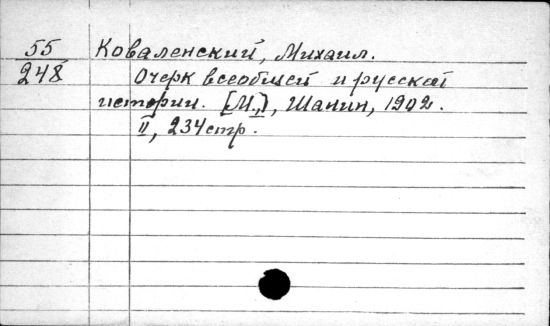 55 Коваленский, Михаил.
248 Очерк всеобщей и русской
истории. [М.,], Шанин, 1902.
II, 234 стр.